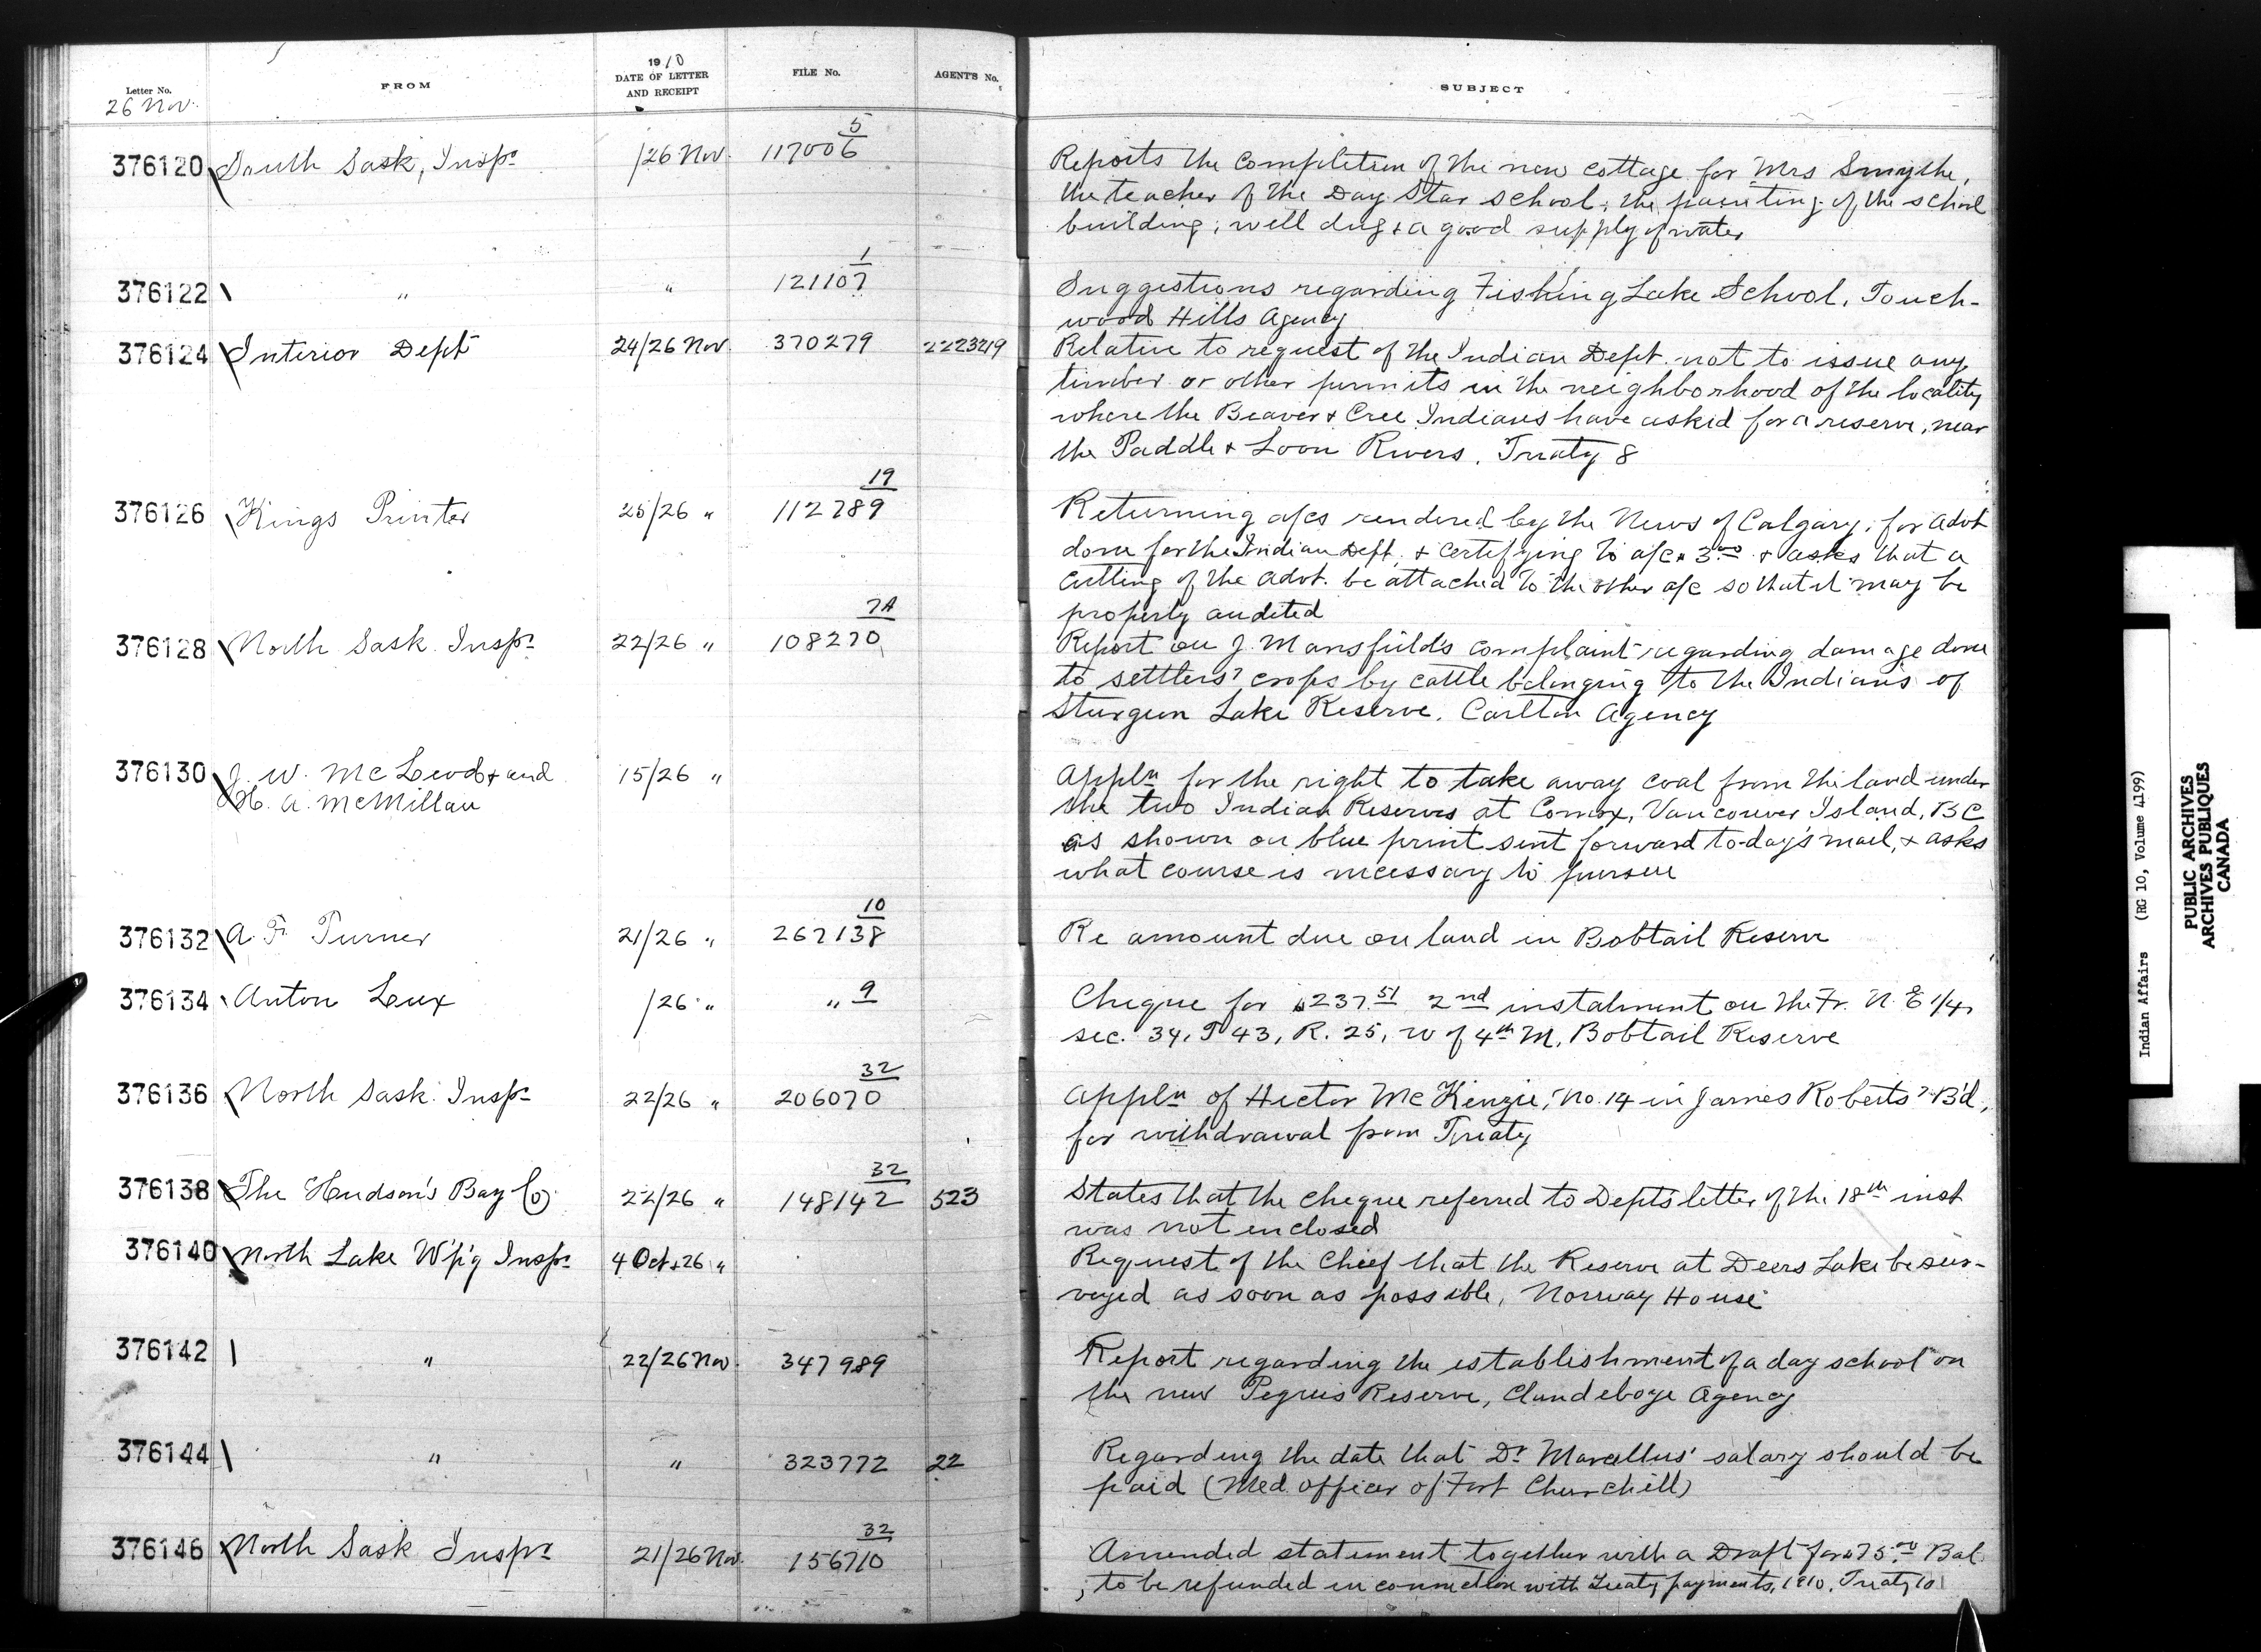 Letter No.
26 Nov.
FROM
1910
DATE OF LETTER
AND RECEIPT
FILE No.
AGENT'S No.
SUBJECT
376120 South Sask, Inspr /26 Nov. 117006 5
Reports the completion of the new cottage for Mrs Smythe,
the teacher of the Day Star school; the painting of the school
building; well dug & a good supply of water
376122 " " 121107 1
Suggestions regarding Fishing Lake School, Touch-
wood Hills Agency
376124 Interior Dept 24/26 Nov. 370279 2223219
Relative to request of the Indian Dept. not to issue any
timber or other permits in the neighborhood of the locality
where the Beaver & Cree Indians have asked for a reserve, near
the Paddle & Loon Rivers. Treaty 8
376126 Kings Printer 25/26 " 112789 19
Returning a/cs rendered by the News of Calgary, for Advt
done for the Indian Dept. & certifying to a/c 3.00 & asks that a
cutting of the advt. be attached to the other a/c so that it may be
properly audited
376128 North Sask. Inspr 22/26 " 108270 7A
Report on J. Mansfield's complaint regarding damage done
to settlers' crops by cattle belonging to the Indians of
Sturgeon Lake Reserve. Carlton Agency
376130 J. W. McLeod & and 15/26 "
H. A. McMillan
Appln for the right to take away coal from the land under
the two Indian Reserves at Comox, Vancouver Island, BC
as shown on blue print sent forward to-day's mail, & asks
what course is necessary to pursue
376132 A. F. Turner 21/26 " 267138 10
Re amount due on land in Bobtail Reserve
376134 Anton Lux /26 " " 9
Cheque for $237.51 2nd instalment on the Fr. N. E 1/4,
sec. 34, T 43, R. 25, W of 4th M, Bobtail Reserve
376136 North Sask. Inspr 22/26 " 206070 32
Appln of Hector McKenzie, No. 14 in James Roberts' B'd,
for withdrawal from Treaty
376138 The Hudson's Bay Co. 22/26 " 148142 32 523
States that the cheque referred to Depts letter of the 18th inst
was not enclosed
376140 North Lake W'p'g Inspr 4 Oct, 26 "
Request of the Chief that the Reserve at Deers Lake be sur-
veyed as soon as possible, Norway House
376142 " 22/26 Nov. 347989
Report regarding the establishment of a day school on
the new Peguis Reserve, Clandeboye Agency
376144 " " 323772 22
Regarding the date that Dr Marcellus' salary should be
paid (Med. officer of Fort Churchill)
376146 North Sask Inspr 21/26 Nov. 156710 32
Amended statement together with a Draft for $75.00 Bal.
, to be refunded in connection with Treaty payments, 1910, Treaty 10
Indian Affairs (RG 10, Volume 4199)
PUBLIC ARCHIVES
ARCHIVES PUBLIQUES
CANADA